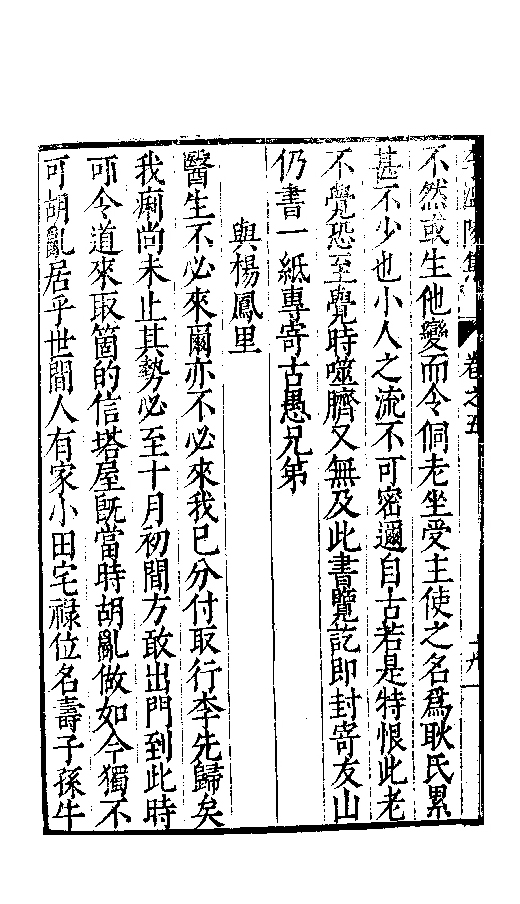 李溫陵集 卷之五
不然或生他變而令侗老坐受主使之名爲耿氏累
甚不少也小人之流不可密邇自古若是特恨此老
不覺恐至覺時噬臍又無及此書覽訖即封寄友山
仍書一紙專寄古愚兄弟
與楊鳳里
醫生不必來爾亦不必來我已分付取行李先歸矣
我痢尚未止其勢必至十月初間方敢出門到此時
可令道來取箇的信塔屋既當時胡亂做如今獨不
可胡亂居乎世間人有家小田宅祿位名壽子孫牛